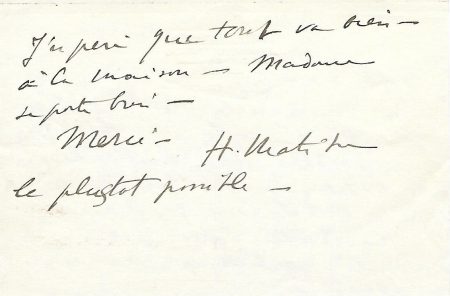 J'espère que tout va bien –
à la maison – Madame
se porte bien –
Merci – H. Matisse
le plustot possible –